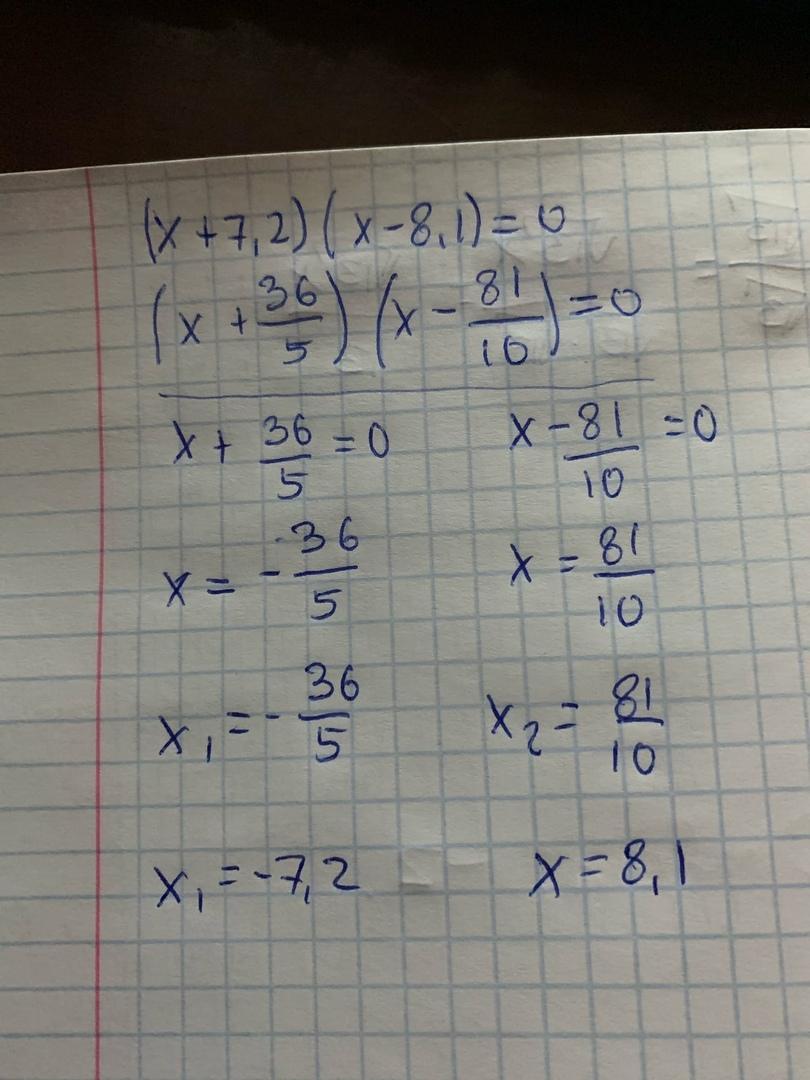 (x+7,2)(x-8,1)=0
(x+36/5)(x-81/10)=0
x+36/5=0 x-81/10=0
x=-36/5 x=81/10
x₁=-36/5 x₂=81/10
x₁=-7,2 x=8,1